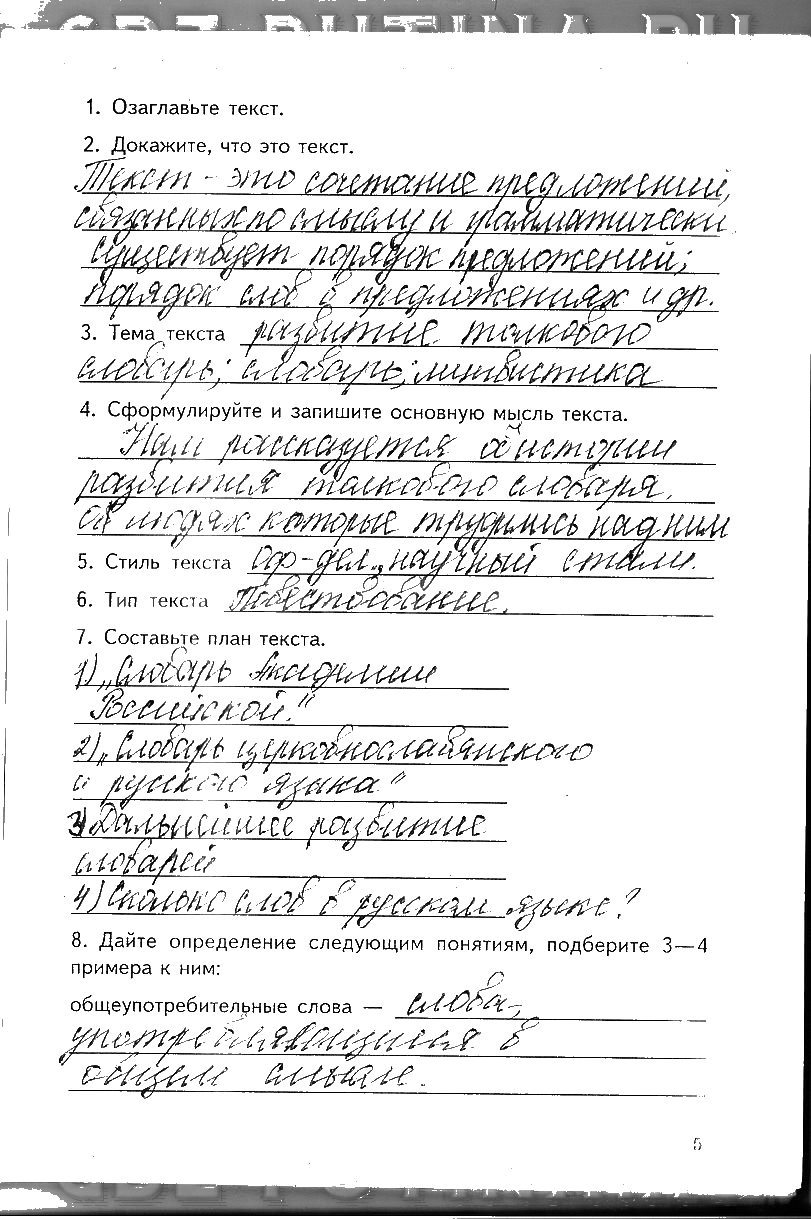 1. Озаглавьте текст.
2. Докажите, что это текст.
Текст - это сочетание предложений,
связанных по смыслу и грамматически
существует порядок предложений;
порядок слов в предложениях и др.
3. Тема текста развитие толкового
словарь; словарь; лингвистика
4. Сформулируйте и запишите основную мысль текста.
Нам рассказуется о истории
развития толкового словаря.
об людях которые трудились над ним
5. Стиль текста Оф-дел., научный стили.
6. Тип текста Повествование.
7. Составьте план текста.
1) „Словарь Академии
Российской."
2) „Словарь церковнославянского
и русского языка"
3) Дальнейшее развитие
словарей
4) Сколько слов в русском языке?
8. Дайте определение следующим понятиям, подберите 3—4
примера к ним:
общеупотребительные слова — слова-,
употребляющиеся в
общем смысле.
5